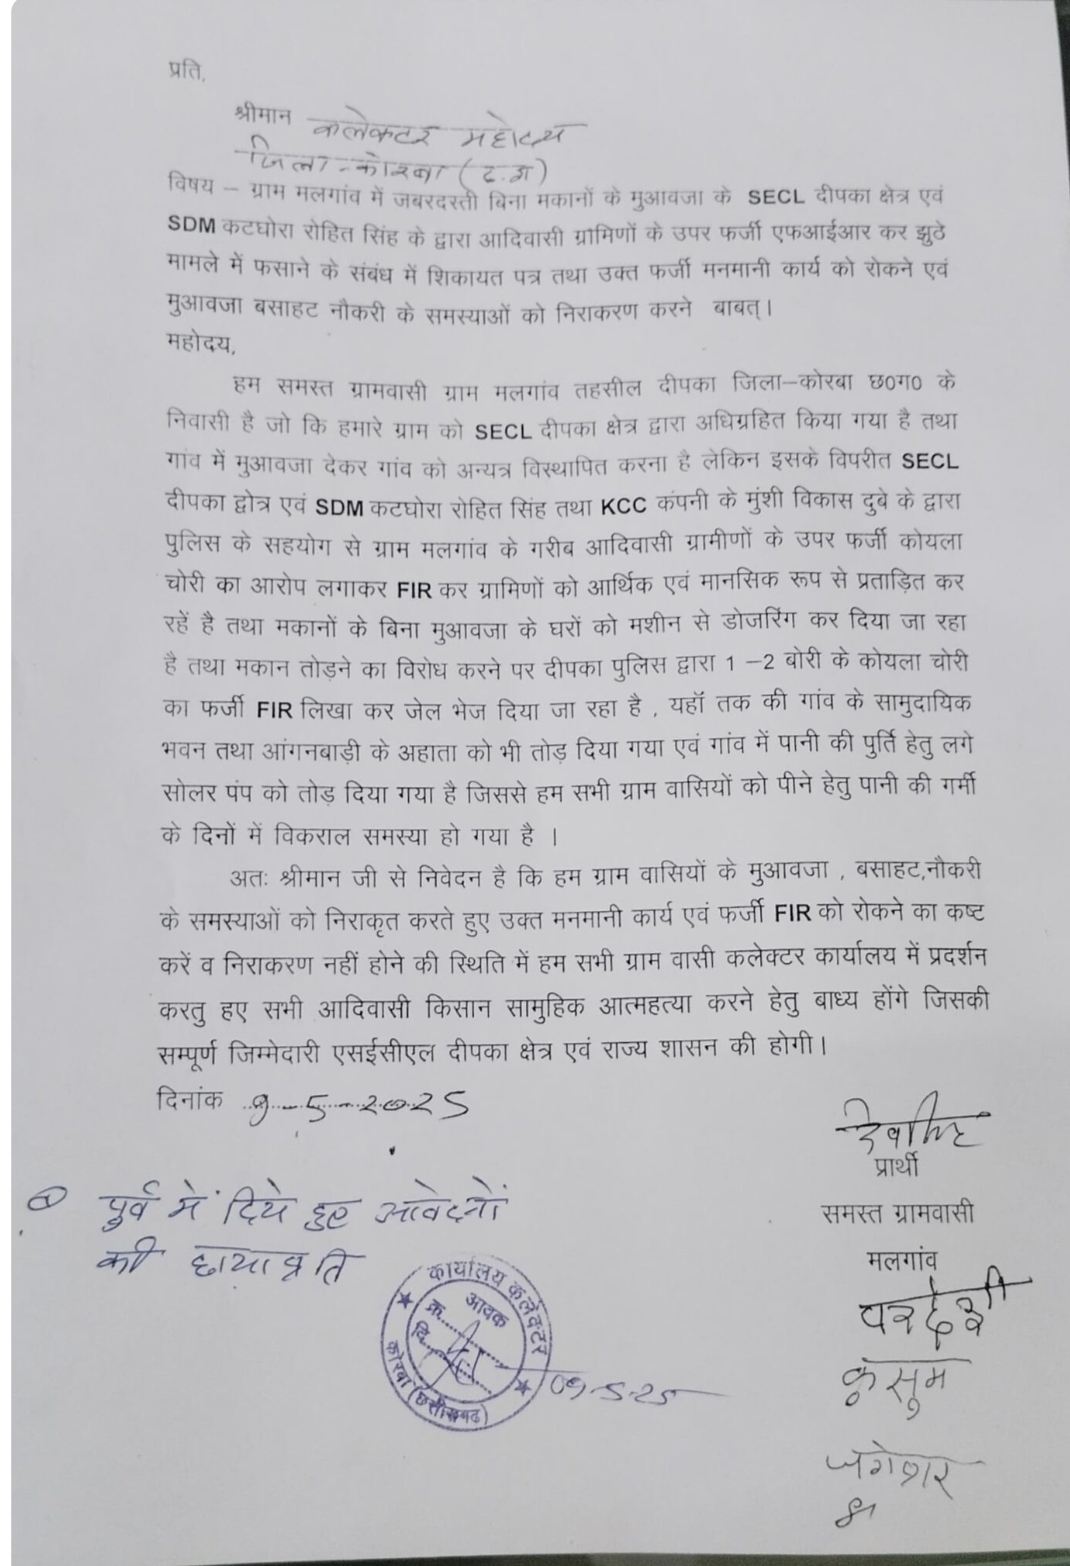 प्रति,
श्रीमान कलेक्टर महोदय
जिला-कोरबा (छ.ग)
विषय – ग्राम मलगांव में जबरदस्ती बिना मकानों के मुआवजा के SECL दीपका क्षेत्र एवं
SDM कटघोरा रोहित सिंह के द्वारा आदिवासी ग्रामिणों के उपर फर्जी एफआईआर कर झुठे
मामले में फसाने के संबंध में शिकायत पत्र तथा उक्त फर्जी मनमानी कार्य को रोकने एवं
मुआवजा बसाहट नौकरी के समस्याओं को निराकरण करने बाबत्।
महोदय,
हम समस्त ग्रामवासी ग्राम मलगांव तहसील दीपका जिला–कोरबा छ0ग0 के
निवासी है जो कि हमारे ग्राम को SECL दीपका क्षेत्र द्वारा अधिग्रहित किया गया है तथा
गांव में मुआवजा देकर गांव को अन्यत्र विस्थापित करना है लेकिन इसके विपरीत SECL
दीपका द्वोत्र एवं SDM कटघोरा रोहित सिंह तथा KCC कंपनी के मुंशी विकास दुबे के द्वारा
पुलिस के सहयोग से ग्राम मलगांव के गरीब आदिवासी ग्रामीणों के उपर फर्जी कोयला
चोरी का आरोप लगाकर FIR कर ग्रामिणों को आर्थिक एवं मानसिक रूप से प्रताड़ित कर
रहें है तथा मकानों के बिना मुआवजा के घरों को मशीन से डोजरिंग कर दिया जा रहा
है तथा मकान तोड़ने का विरोध करने पर दीपका पुलिस द्वारा 1 –2 बोरी के कोयला चोरी
का फर्जी FIR लिखा कर जेल भेज दिया जा रहा है , यहॉ तक की गांव के सामुदायिक
भवन तथा आंगनबाड़ी के अहाता को भी तोड़ दिया गया एवं गांव में पानी की पुर्ति हेतु लगे
सोलर पंप को तोड़ दिया गया है जिससे हम सभी ग्राम वासियों को पीने हेतु पानी की गर्मी
के दिनों में विकराल समस्या हो गया है ।
अतः श्रीमान जी से निवेदन है कि हम ग्राम वासियों के मुआवजा , बसाहट,नौकरी
के समस्याओं को निराकृत करते हुए उक्त मनमानी कार्य एवं फर्जी FIR को रोकने का कष्ट
करें व निराकरण नहीं होने की स्थिति में हम सभी ग्राम वासी कलेक्टर कार्यालय में प्रदर्शन
करतु हए सभी आदिवासी किसान सामुहिक आत्महत्या करने हेतु बाध्य होंगे जिसकी
सम्पूर्ण जिम्मेदारी एसईसीएल दीपका क्षेत्र एवं राज्य शासन की होगी।
दिनांक 9-5-2025
प्रार्थी
समस्त ग्रामवासी
मलगांव
पुर्व में दिये हुए आवेदनों
की छायाप्रति
कार्यालय कलेक्टर
आवक
क्र.
दि.
कोरबा (छत्तीसगढ़)
09-5-25
परदेशी
कुसुम